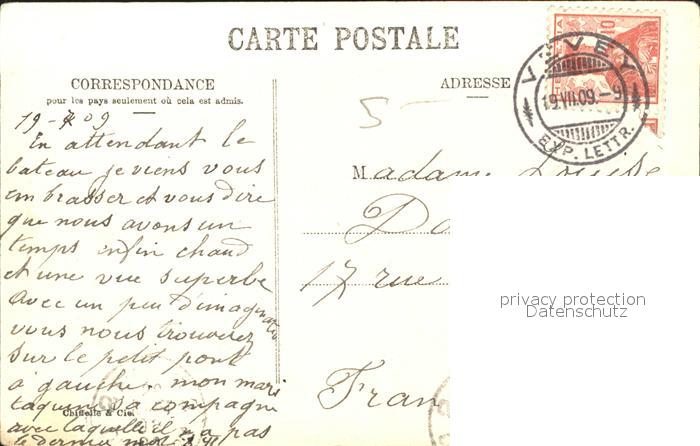 CARTE POSTALE
CORRESPONDANCE
pour les pays seulement où cela est admis.
ADRESSE
VEVEY
19.VII.09.-9
EXP. LETTR.
10
5
19-7 09
En attendant le
bateau je viens vous
embrasser et vous dire
que nous avons un
temps enfin chaud
et une vue superbe
Avec un peu d'imagination
vous nous trouverez
sur le petit pont
à gauche. mon mari
taquine sa compagne
avec laquelle il n'a pas
le dernier mot
Madame Louise
Do
17 rue
Fran
& Cie
privacy protection
Datenschutz